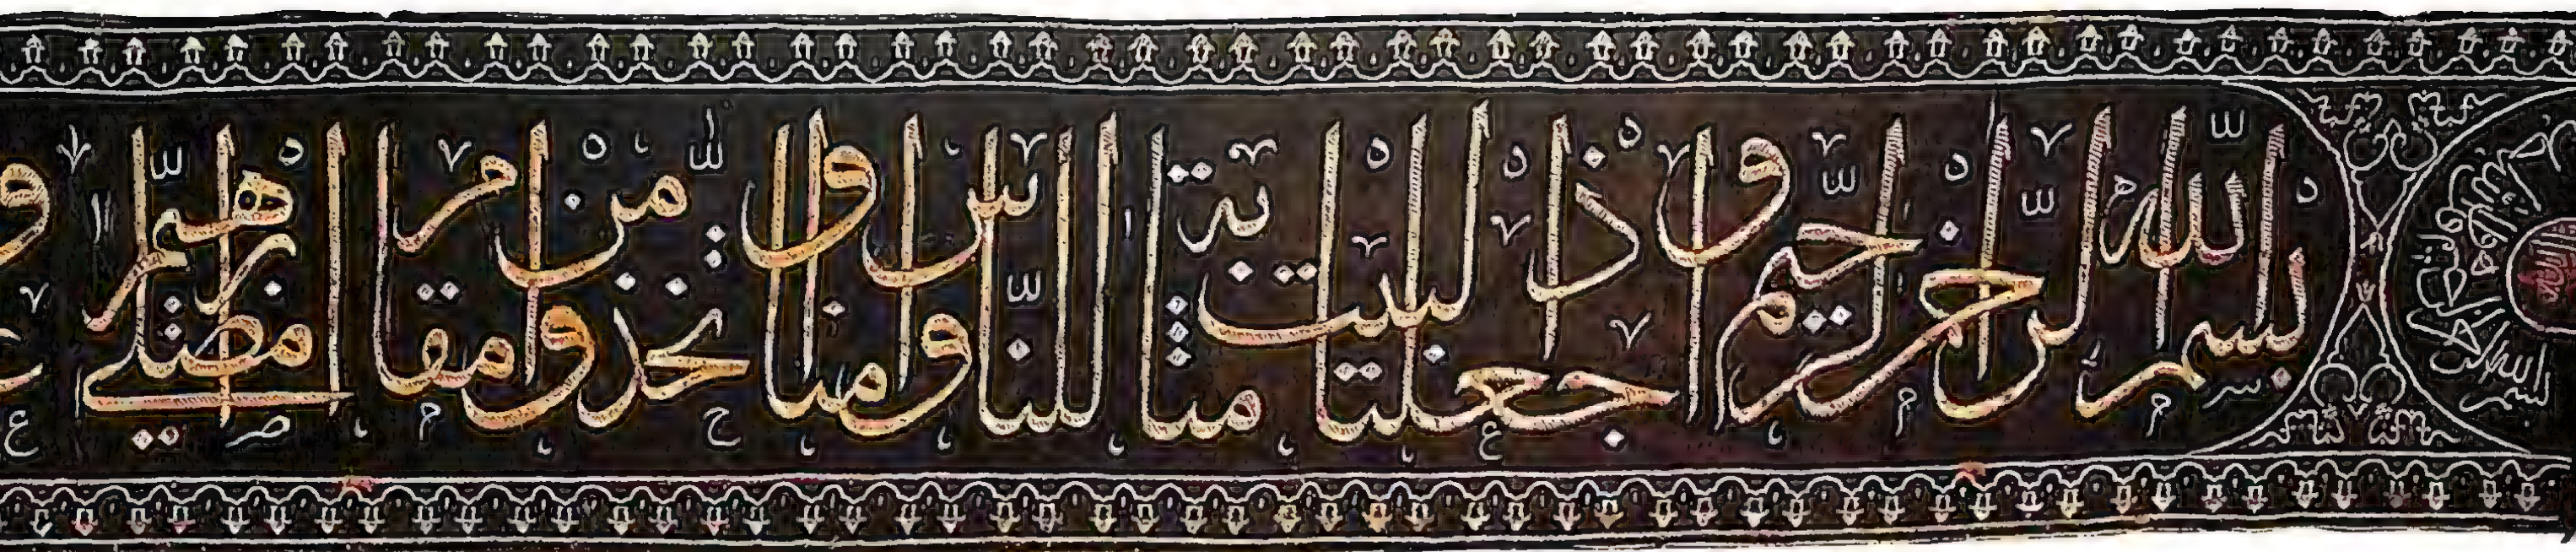 بسم الله الرحمن الرحيم وإذ جعلنا البيت مثابة للناس وأمنا واتخذوا من مقام إبراهيم مصلى و